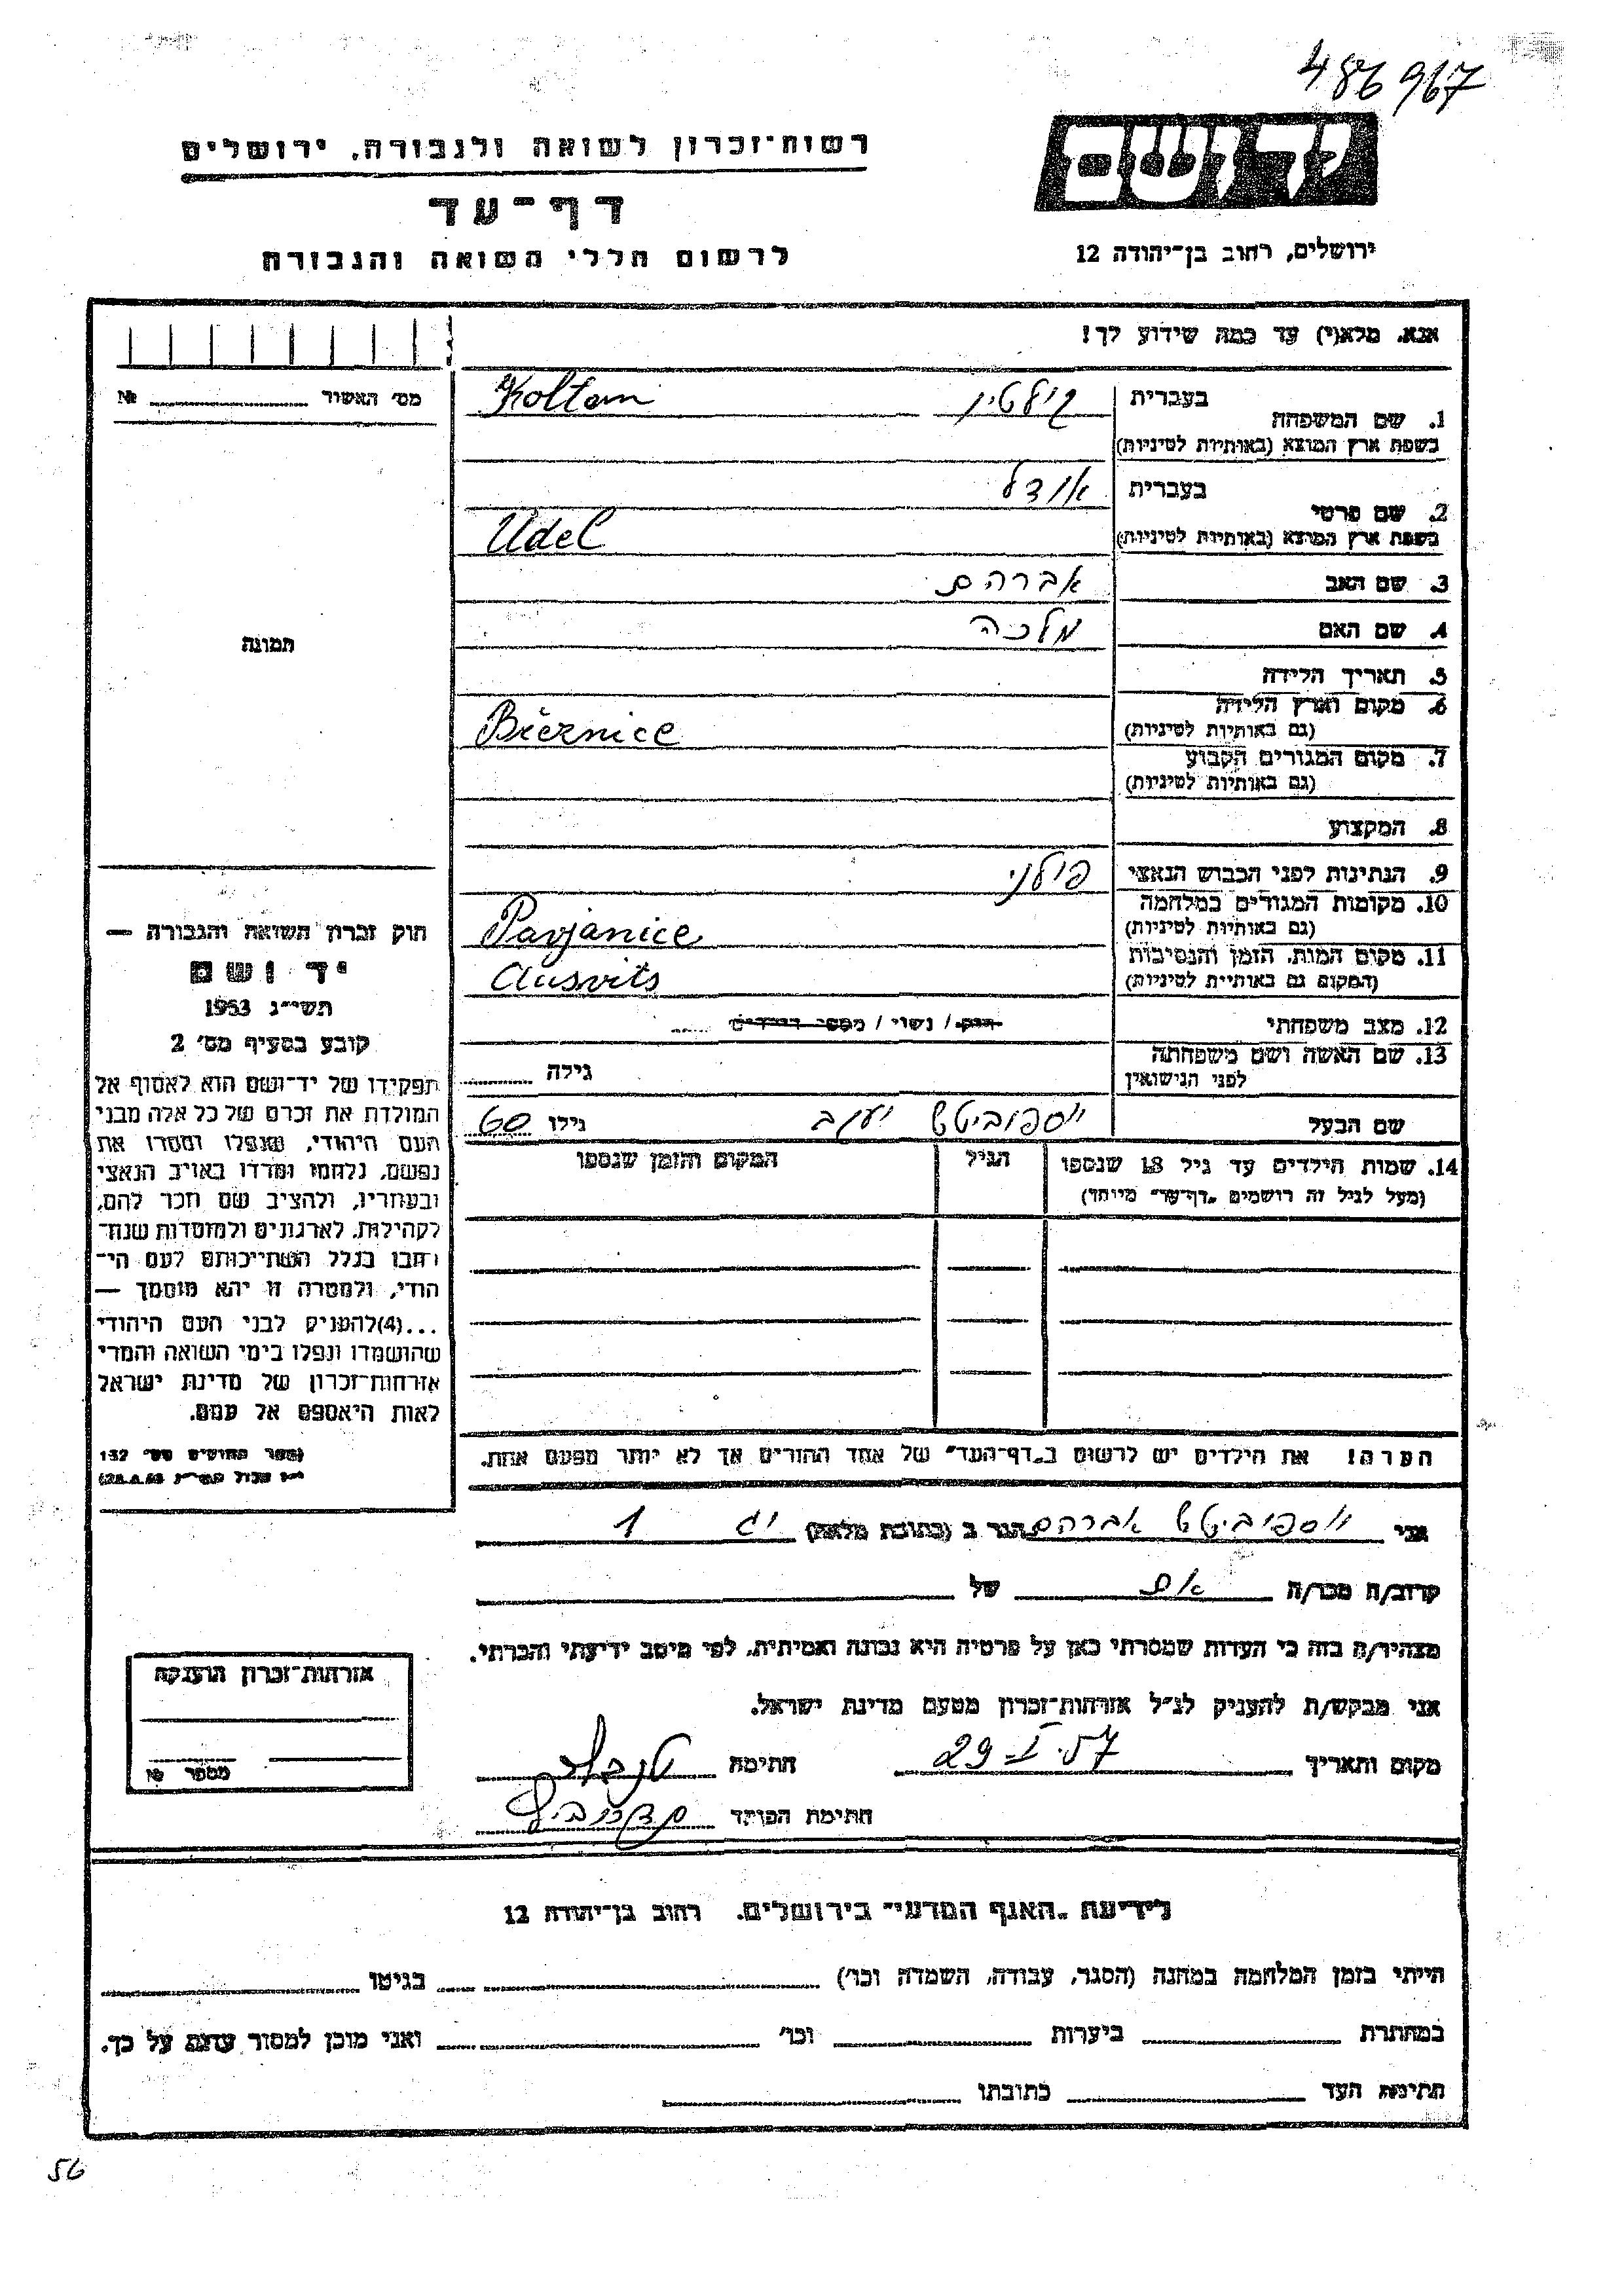 486967
רשות־זכרון לשואה ולגבורה, ירושלים
יד ושם
דף־עד
ירושלים, רחוב בן־יהודה 12
לרשום חללי השואה והגבורה
אנא, מלא(י) עד כמה שידוע לך!
מס׳ האשור № 
1. שם המשפחה
בעברית
Koltam
בשפת ארץ המוצא (באותיות לטיניות)
2. שם פרטי
בעברית אודל
בשפת ארץ המוצא (באותיות לטיניות) Udel
3. שם האב אברהם
4. שם האם מלכה
תמונה
5. תאריך הלידה
6. מקום וארץ הלידה
(גם באותיות לטיניות) Biernice
7. מקום המגורים הקבוע
(גם באותיות לטיניות)
8. המקצוע
9. הנתינות לפני הכבוש הנאצי פולני
10. מקומות המגורים במלחמה
(גם באותיות לטיניות) Pavjanice
11. מקום המות, הזמן והנסיבות
(המקום גם באותיות לטיניות) Ausvits
12. מצב משפחתי רוק / נשוי / מספר הילדים
13. שם האשה ושם משפחתה
לפני הנישואין גילה
שם הבעל יוספוביטש יעקב גילו 60
14. שמות הילדים עד גיל 18 שנספו הגיל המקום והזמן שנספו
(מעל לגיל זה רושמים „דף־עד״ מיוחד)
חוק זכרון השואה והגבורה —
יד ושם
תשי״ג 1953
קובע בסעיף מס׳ 2
תפקידו של יד־ושם הוא לאסוף אל
המולדת את זכרם של כל אלה מבני
העם היהודי, שנפלו ומסרו את
נפשם, נלחמו ומרדו באויב הנאצי
ובעוזריו, ולהציב שם וזכר להם,
לקהילות, לארגונים ולמוסדות שנח־
רבו בגלל השתייכותם לעם הי־
הודי, ולמטרה זו יהא מוסמך —
...(4)להעניק לבני העם היהודי
שהושמדו ונפלו בימי השואה והמרי
אזרחות־זכרון של מדינת ישראל
לאות היאספם אל עמם.
(ספר החוקים מס׳ 132
הערה! את הילדים יש לרשום ב„דף־העד״ של אחד ההורים אך לא יותר מפעם אחת.
אני יוספוביטש אברהם הגר ב (כתובת מלאה) 1
קרוב/ה מכר/ה אם של
מצהיר/ה בזה כי העדות שמסרתי כאן על פרטיה היא נכונה ואמיתית, לפי מיטב ידיעתי והכרתי.
אני מבקש/ת להעניק לנ״ל אזרחות־זכרון מטעם מדינת ישראל.
מקום ותאריך 29.I.57 חתימה
חתימת הפוקד
אזרחות־זכרון הוענקה
מספר №
לידיעת „האגף המדעי״ בירושלים, רחוב בן־יהודה 12
הייתי בזמן המלחמה במחנה (הסגר, עבודה, השמדה וכו׳) בגיטו
במחתרת ביערות וכו׳ ואני מוכן למסור עדות על כך.
חתימת העד כתובתו
56